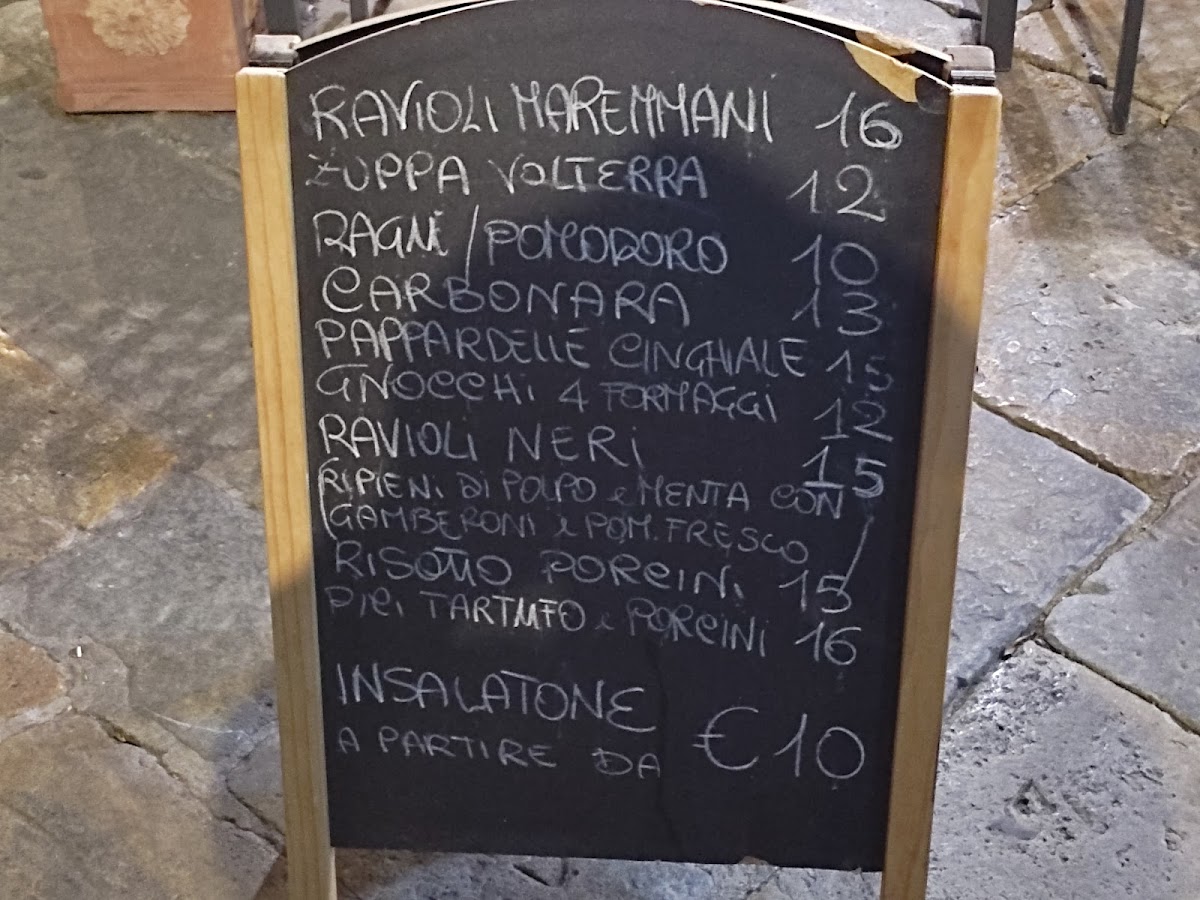 RAVIOLI MAREMMANI 16
ZUPPA VOLTERRA 12
RAGÙ / POMODORO 10
CARBONARA 13
PAPPARDELLE CINGHIALE 15
GNOCCHI 4 FORMAGGI 12
RAVIOLI NERI 15
(RIPIENI DI POLPO e MENTA CON
GAMBERONI e POM. FRESCO /
RISOTTO PORCINI 15
PICI TARTUFO e PORCINI 16
INSALATONE
A PARTIRE DA €10